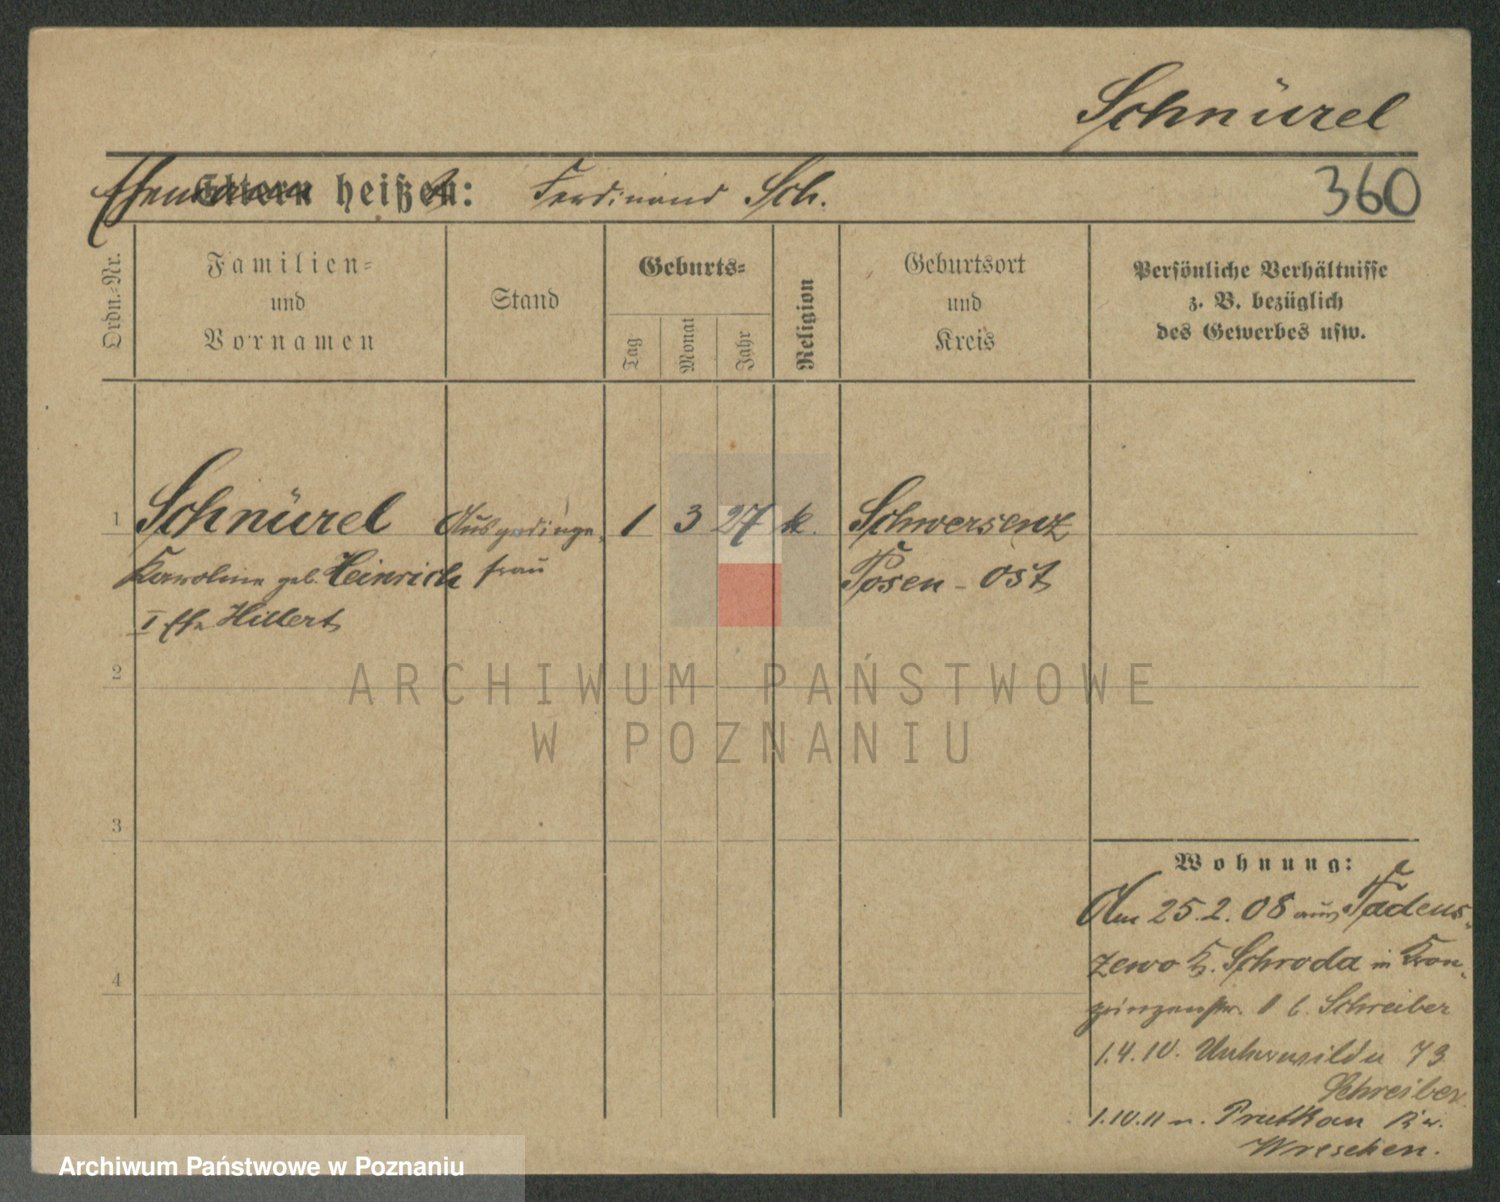 Schnürel
Ehemann heißt: Ferdinand Sch. 360
Ordn.-Nr.
Familien-
und
Vornamen
Stand
Geburts-
Tag
Monat
Jahr
Religion
Geburtsort
und
Kreis
Persönliche Verhältnisse
z. B. bezüglich
des Gewerbes usw.
1 Schnürel Ausgedinge- 1 3 27 k. Schwersenz
Karoline geb. Heinrich frau Posen - Ost
I Ehe Hillert
2
ARCHIWUM PAŃSTWOWE
W POZNANIU
3
Wohnung:
Am 25.2.08 aus Tadeus-
zewo K. Schroda in Kron-
prinzenstr. b. Schreiber
4
1.4.10. Unterwilda 73
Schreiber
1.10.11 n. Kr.
Wreschen.
Archiwum Państwowe w Poznaniu